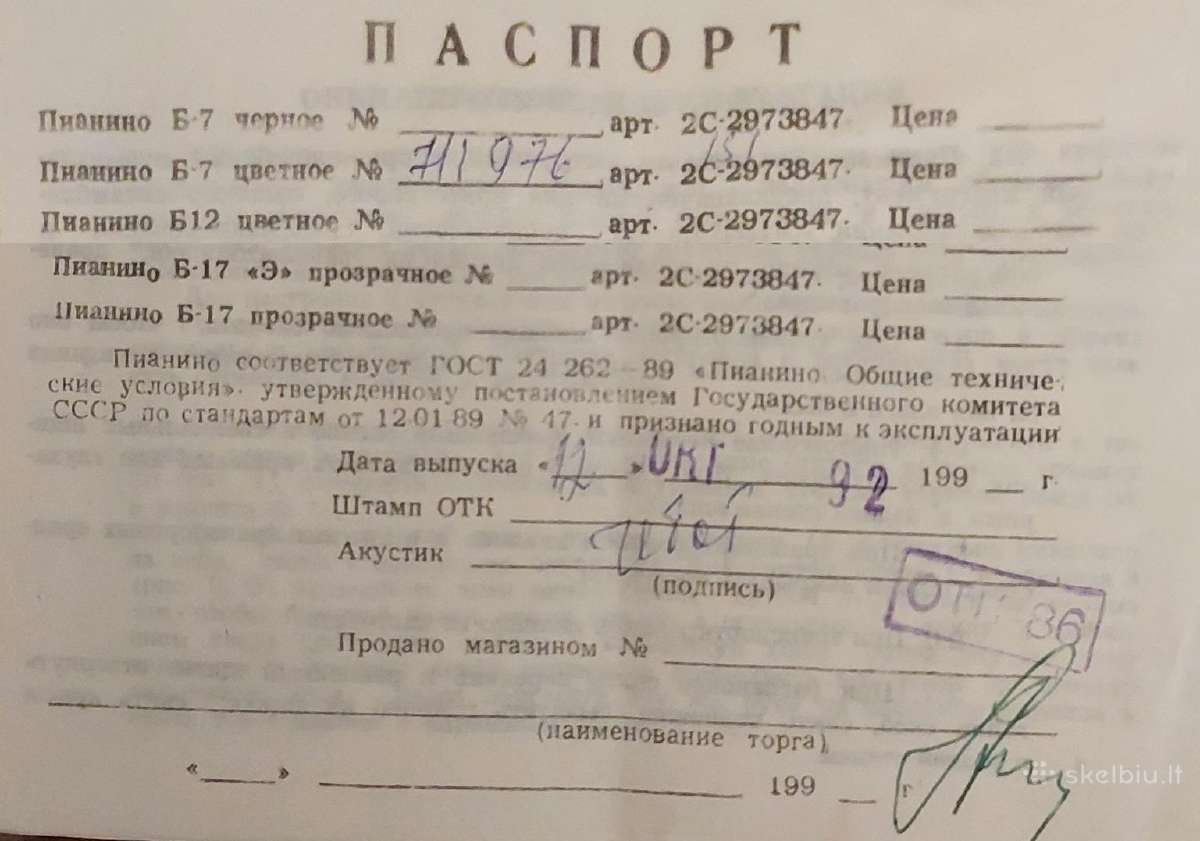 ПАСПОРТ
Пианино Б-7 черное № арт. 2С-2973847. Цена
Пианино Б-7 цветное № 711976 арт. 2С-2973847. Цена
Пианино Б12 цветное № арт. 2С-2973847. Цена
Цена
Пианино Б-17 «Э» прозрачное № арт. 2С-2973847. Цена
Пианино Б-17 прозрачное № арт. 2С-2973847. Цена
Пианино соответствует ГОСТ 24 262—89 «Пианино Общие техниче-
ские условия». утвержденному постановлением Государственного комитета
СССР по стандартам от 12.01 89 № 47. и признано годным к эксплуатации
Дата выпуска «12» ОКТ 92 199 г.
Штамп ОТК
Акустик
(подпись)
ОТК 36
Продано магазином №
(наименование торга)
« » 199 г
skelbiu.lt